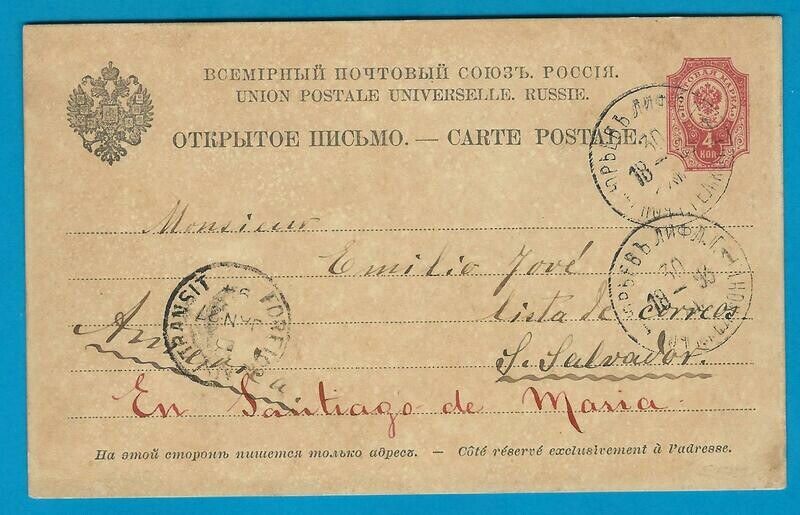 ВСЕМІРНЫЙ ПОЧТОВЫЙ СОЮЗЪ. РОССІЯ.
UNION POSTALE UNIVERSELLE. RUSSIE.
ОТКРЫТОЕ ПИСЬМО. — CARTE POSTALE.
ПОЧТОВАЯ МАРКА
4
КОП
ЮРЬЕВЪ ЛИФЛ.
30
18
Monsieur
Emilio Jové
ЮРЬЕВЪ ЛИФЛ. Г.
30
18 – 96
TRANSIT
FOREIGN
JAN
lista de correos
S. Salvador.
En Santiago de Maria.
На этой сторонѣ пишется только адресъ. — Côté réservé exclusivement à l'adresse.